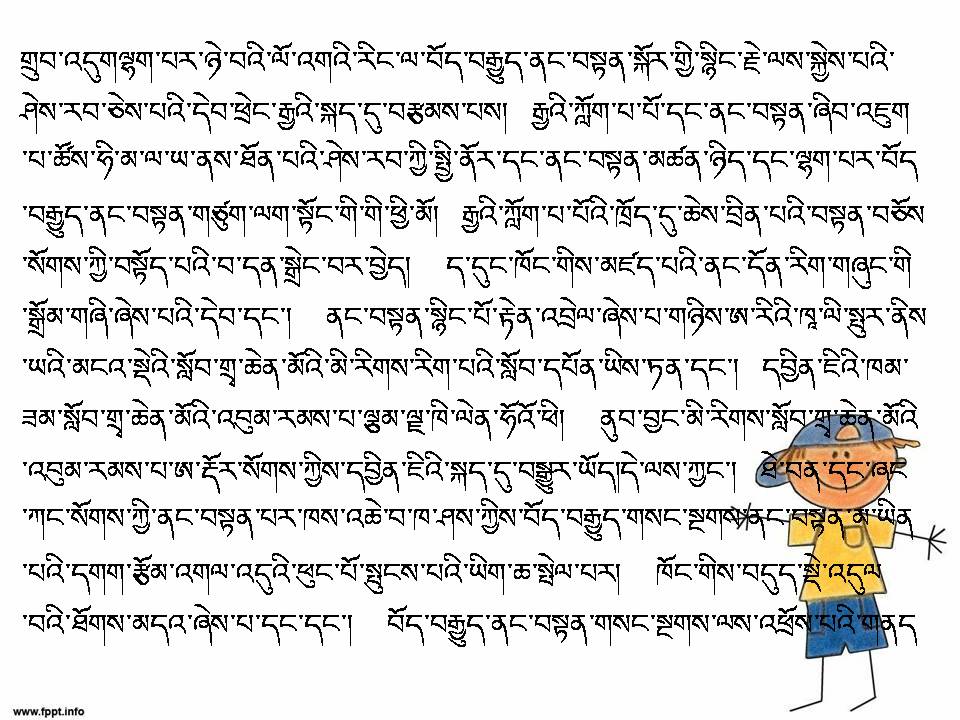 གྲུབ་འདུགལྷག་པར་ཉེ་བའི་ལོ་འགའི་རིང་ལ་བོད་བརྒྱུད་ནང་བསྟན་སྐོར་གྱི་སྙིང་རྗེ་ལས་སྐྱེས་པའི་
ཤེས་རབ་ཅེས་པའི་དེབ་ཕྲེང་རྒྱའི་སྐད་དུ་བརྩམས་པས། རྒྱའི་ཀློག་པ་པོ་དང་ནང་བསྟན་ཞིབ་འཇུག
་པ་ཚོས་ཧི་མ་ལ་ཡ་ནས་ཐོན་པའི་ཤེས་རབ་ཀྱི་སྤྱི་ནོར་དང་ནང་བསྟན་མཚན་ཉིད་དང་ལྷག་པར་བོད
་བརྒྱུད་ནང་བསྟན་གཙུག་ལག་སྟོང་གི་གི་ཕྱི་མོ། རྒྱའི་ཀློག་པ་པོའི་ཁྲོད་དུ་ཆེས་བྲིན་པའི་བསྟན་བཅོས
་སོགས་ཀྱི་བསྟོད་པའི་བ་དན་སྒྲེང་བར་བྱེད། ད་དུང་ཁོང་གིས་མཛད་པའི་ནང་དོན་རིག་གཞུང་གི
་སྒྲོམ་གཞི་ཞེས་པའི་དེབ་དང་། ནང་བསྟན་སྙིང་པོ་རྟེན་འབྲེལ་ཞེས་པ་གཉིས་ཨ་རིའི་ཁཱ་ལི་སྤུར་ནིས
་ཡའི་མངའ་སྡེའི་སློབ་གྲྭ་ཆེན་མོའི་མི་རིགས་རིག་པའི་སློབ་དཔོན་ཡིས་ཏན་དང་། དབྱིན་ཇིའི་ཁམ་
ཟམ་སློབ་གྲྭ་ཆེན་མོའི་འབུམ་རམས་པ་ལྕམ་ལྷ་ཁི་ལེན་ཧོའོ་ཕི། ནུབ་བྱང་མི་རིགས་སློབ་གྲྭ་ཆེན་མོའི
་འབུམ་རམས་པ་ཨ་རྡོར་སོགས་ཀྱིས་དབྱིན་ཇིའི་སྐད་དུ་བསྒྱུར་ཡོད།དེ་ལས་ཀྱང་། ཐེ་བན་དང་ཞང
་ཀང་སོགས་ཀྱི་ནང་བསྟན་པར་ཁས་འཆེ་བ་ཁ་ཤས་ཀྱིས་བོད་བརྒྱུད་གསང་སྔགས་ནང་བསྟན་མ་ཡིན
་པའི་དགག་རྩོམ་འགལ་འདུའི་ཕུང་པོ་སྤུངས་པའི་ཡིག་ཆ་སྤེལ་པར། ཁོང་གིས་བདུད་སྡེ་འདུལ
་བའི་ཐོགས་མདའ་ཞེས་པ་དང་དང་། བོད་བརྒྱུད་ནང་བསྟན་གསང་སྔགས་ལས་འཕྲོས་པའི་གནད
www.fppt.info